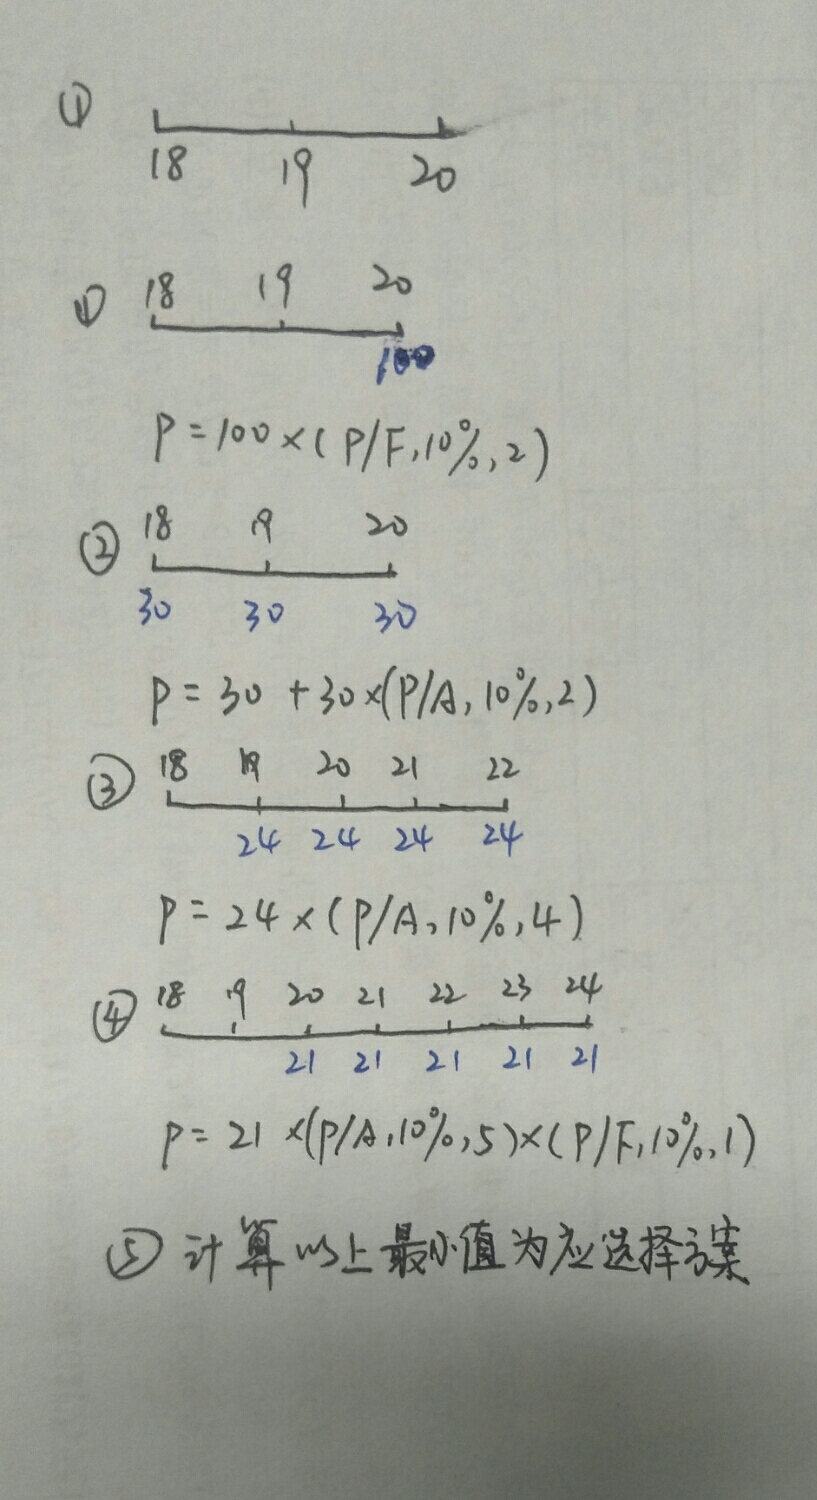 ①
18 19 20
① 18 19 20
100
P=100×(P/F,10%,2)
② 18 19 20
30 30 30
P=30+30×(P/A,10%,2)
③ 18 19 20 21 22
24 24 24 24
P=24×(P/A,10%,4)
④ 18 19 20 21 22 23 24
21 21 21 21 21
P=21×(P/A,10%,5)×(P/F,10%,1)
⑤ 计算以上最小值为应选择方案